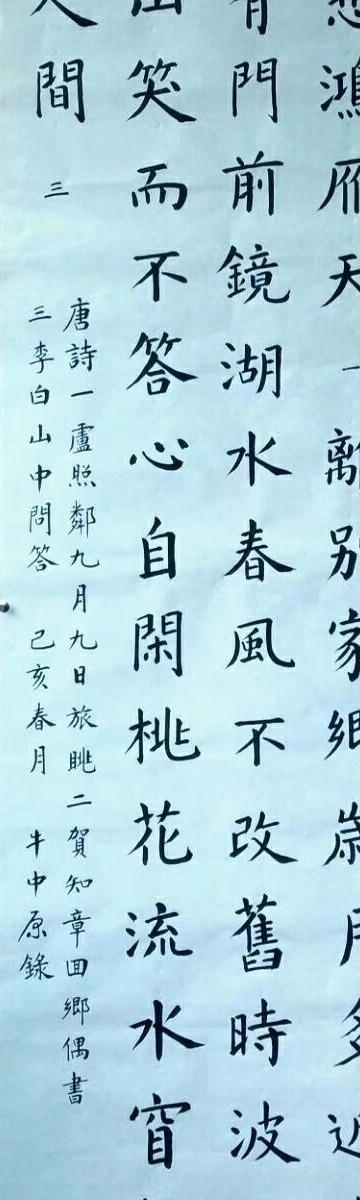 鴻雁天一離別家鄉歲月多近
門前鏡湖水春風不改舊時波
笑而不答心自閑桃花流水窅
人間 三
唐詩一盧照鄰九月九日旅眺二賀知章回鄉偶書
三李白山中問答 己亥春月 牛中原錄